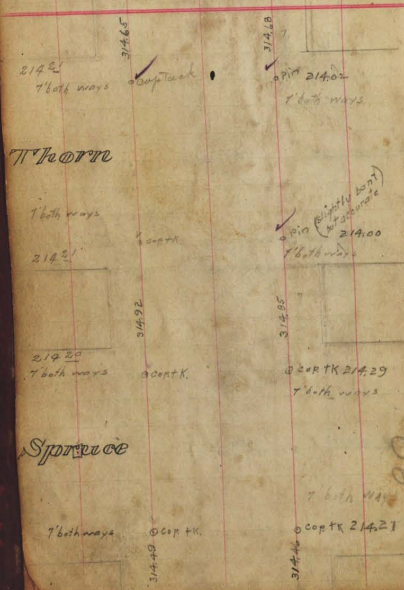 314.65
314.68
214.21
7' both ways
Cop Tack
Pin 214.02
7' both ways
Thorn
7' both ways
Cop tk
Pin (slightly bent not accurate)
214.00
7' both ways
214.21
314.92
314.95
214.20
7' both ways
Cop tk.
Cop tk 214.29
7' both ways
Spruce
7' both ways
7' both ways
Cop tk.
Cop tk 214.21
314.49